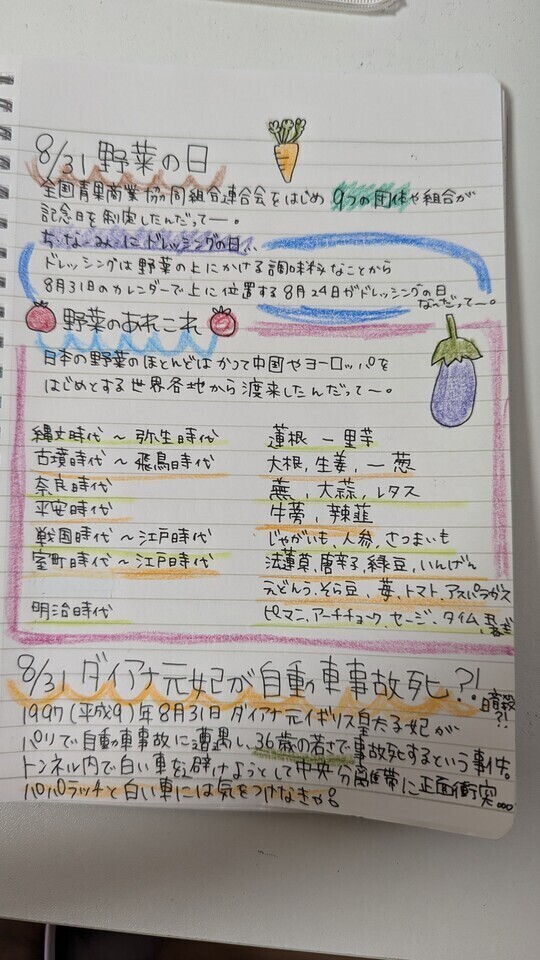 8/31 野菜の日
全国青果商業協同組合連合会をはじめ 9つの団体や組合が
記念日を制定したんだってー。
ち・な・み・に ドレッシングの日…
ドレッシングは野菜の上にかける調味料なことから
8月31日のカレンダーで上に位置する8月24日がドレッシングの日
なんだってー。
野菜のあれこれ
日本の野菜のほとんどはかつて中国やヨーロッパを
はじめとする世界各地から渡来したんだってー。
縄文時代 ~ 弥生時代 蓮根 ー 里芋
古墳時代 ~ 飛鳥時代 大根, 生姜, ー 葱
奈良時代 蕪, 大蒜, レタス
平安時代 牛蒡, 辣韮
戦国時代 ~ 江戸時代 じゃがいも, 人参, さつまいも
室町時代 ~ 江戸時代 法蓮草, 唐辛子, 緑豆, いんげん
えどんう, そら豆, 苺, トマト, アスパラガス
明治時代 ピマン, アーチチョーク, セージ, タイム,
8/31 ダイアナ元妃が自動車事故死?!
暗殺?!
1997(平成9)年8月31日 ダイアナ元イギリス皇太子妃が
パリで自動車事故に遭遇し, 36歳の若さで事故死するという事件。
トンネル内で白い車を避けようとして中央分離帯に正面衝突…。
パパラッチと白い車には気をつけなきゃ。